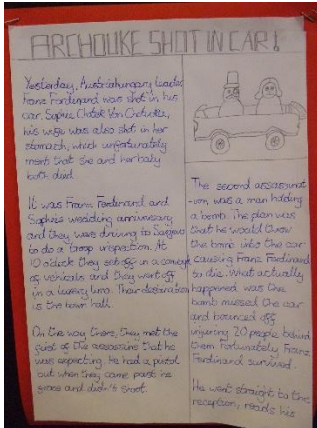 ARCHDUKE SHOT IN CAR!
Yesterday, Austriahungary leader
Franz Ferdinand was shot in his
car. Sophie Chotek Von Chotvolle,
his wife was also shot in her
stomach, which unfortunately
ment that she and her baby
both died.
It was Frann Ferdinand and
Sophies wedding anniversary
and they were driving to
to do a troop inspection. At
10 o'clock they set off in a convoy
of vehicals and they went off
in a luxury limo. Their destination
is the town hall.
On the way there, they met the
first of the assassins that he
was expecting. He had a pistol
but when they came past he
froze and didn't shoot.
The second assassinat
-ion was a man holding
a bomb. The plan was
that he would throw
the bomb into the car
causing Franz Ferdinand
to die. What actually
happened was the
bomb missed the car
and bounced off
injuring 20 people behind
them. Fortunately Franz
Ferdinand survived.
He went straight to the
reception, reads his